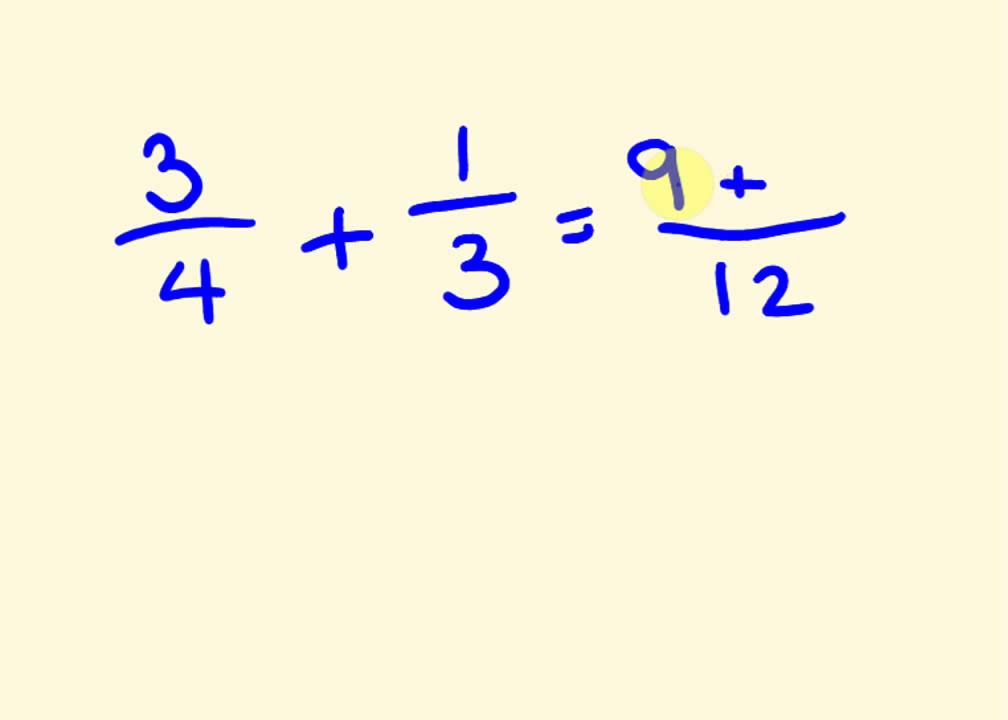 3/4 + 1/3 = 9 + /12